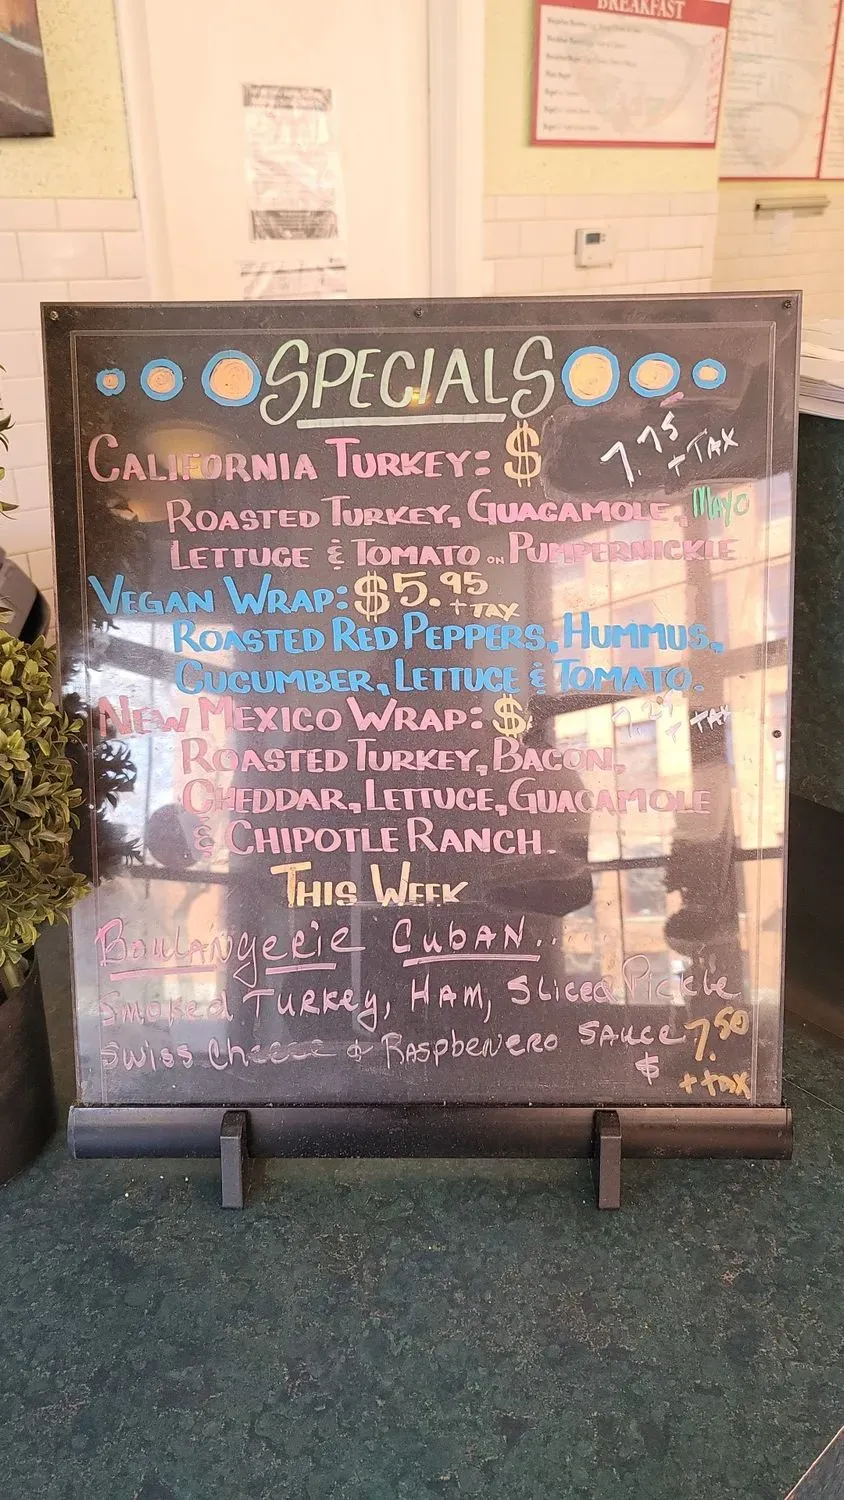 BREAKFAST
SPECIALS
CALIFORNIA TURKEY: $ 7.75 + TAX
ROASTED TURKEY, GUACAMOLE, MAYO
LETTUCE & TOMATO ON PUMPERNICKLE
VEGAN WRAP: $5.95 + TAX
ROASTED RED PEPPERS, HUMMUS,
CUCUMBER, LETTUCE & TOMATO.
NEW MEXICO WRAP: $ + TAX
ROASTED TURKEY, BACON,
CHEDDAR, LETTUCE, GUACAMOLE
& CHIPOTLE RANCH.
THIS WEEK
BOULANGERIE CUBAN.....
SMOKED TURKEY, HAM, SLICED PICKLE
SWISS CHEESE & RASPBENERO SAUCE $ 7.50
+ TAX